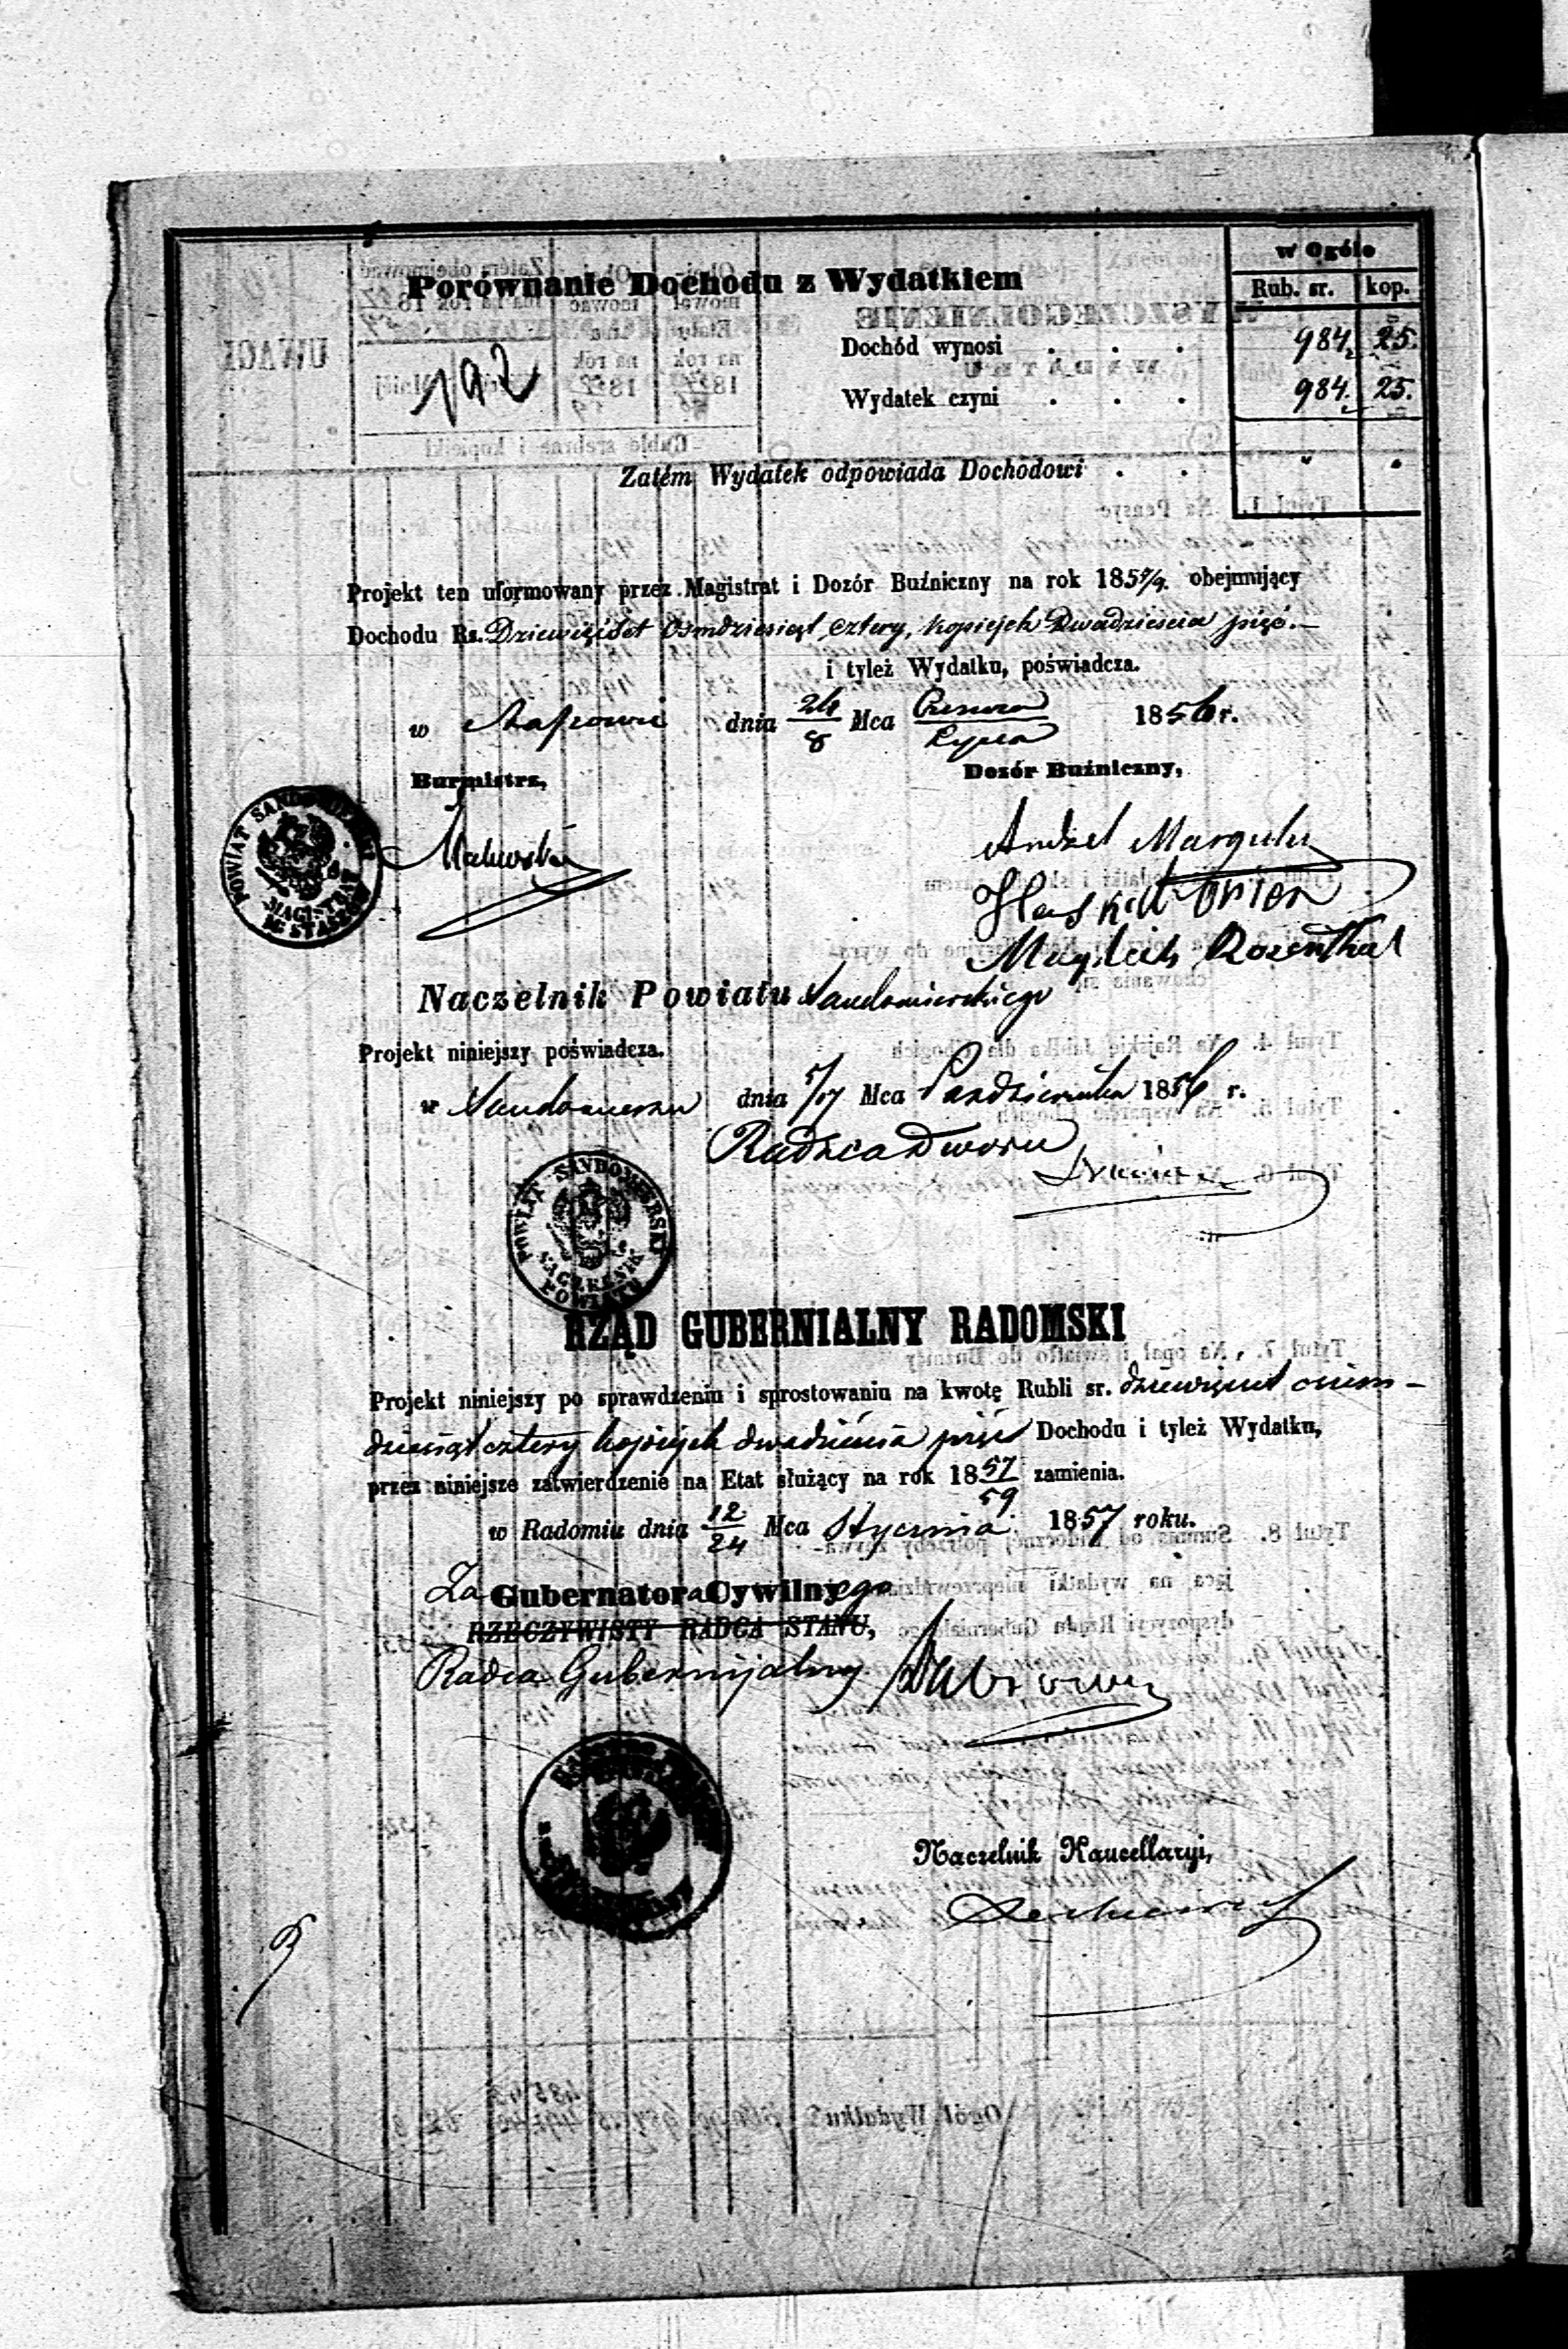 w Ogóle
Rub. sr. kop.
Porównanie Dochodu z Wydatkiem
192
Dochód wynosi . . . 984. 25.
Wydatek czyni . . . 984. 25.
Zatém Wydatek odpowiada Dochodowi . . " "
Projekt ten uformowany przez Magistrat i Dozór Buźniczny na rok 1857/9. obejmujący
Dochodu Rs. Dziewięćset Ośmdziesiąt cztery, kopiejek Dwadzieścia pięć.—
i tyleż Wydatku, poświadcza.
w Staszowie dnia 26/8 Mca Czerwca/Lipca 1856 r.
Burmistrz,
Dozór Buźniczny,
POWIAT SANDOMIERSKI
MAGISTRAT
M. STASZÓW
Andzel Margules
Haskel
Rosenthal
Naczelnik Powiatu Sandomierskiego
Projekt niniejszy poświadcza.
w Sandomierzu dnia 5/17 Mca Pazdziernika 1856 r.
Radzca Dworu
POWIAT SANDOMIERSKI
NACZELNIK
POWIATU
RZĄD GUBERNIALNY RADOMSKI
Projekt niniejszy po sprawdzeniu i sprostowaniu na kwotę Rubli sr. dziewięćset ośm-
dziesiąt cztery kopiejek dwadzieścia pięć Dochodu i tyleż Wydatku,
przez niniejsze zatwierdzenie na Etat służący na rok 1857/59 zamienia.
w Radomiu dnia 12/24 Mca Stycznia 1857 roku.
Za Gubernatora Cywilnego
RZECZYWISTY RADCA STANU,
Radca Gubernijalny
Naczelnik Kancellaryi,